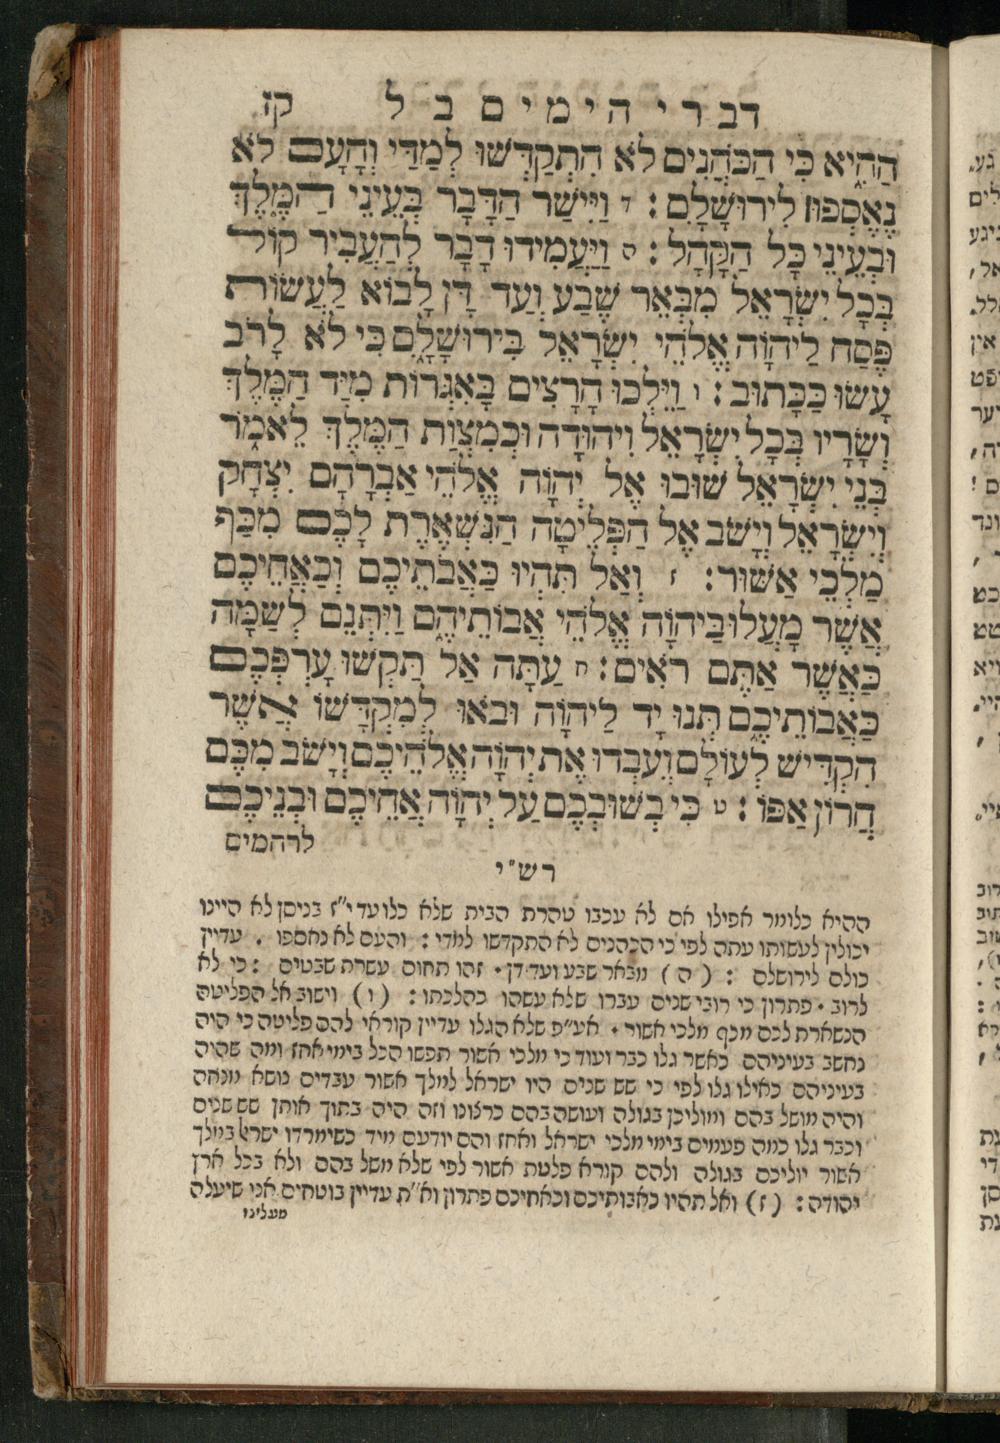 דברי הימים ב ל קז
הַהִיא כִּי הַכֹּהֲנִים לֹא הִתְקַדְּשׁוּ לְמַדַּי וְהָעָם לֹא
נֶאֶסְפוּ לִירוּשָׁלָםִ : ד וַיִּישַׁר הַדָּבָר בְּעֵינֵי הַמֶּלֶךְ
וּבְעֵינֵי כָּל הַקָּהָל : ה וַיַּעֲמִידוּ דָבָר לְהַעֲבִיר קוֹל
בְּכָל יִשְׂרָאֵל מִבְּאֵר שֶׁבַע וְעַד דָּן לָבוֹא לַעֲשׂוֹת
פֶּסַח לַיהוָֹה אֱלֹהֵי יִשְׂרָאֵל בִּירוּשָׁלָםִ כִּי לֹא לָרֹב
עָשׂוּ כַּכָּתוּב : ו וַיֵּלְכוּ הָרָצִים בָּאִגְּרוֹת מִיַּד הַמֶּלֶךְ
וְשָׂרָיו בְּכָל יִשְׂרָאֵל וִיהוּדָה וּכְמִצְוַת הַמֶּלֶךְ לֵאמֹר
בְּנֵי יִשְׂרָאֵל שׁוּבוּ אֶל יְהוָֹה אֱלֹהֵי אַבְרָהָם יִצְחָק
וְיִשְׂרָאֵל וְיָשֹׁב אֶל הַפְּלֵיטָה הַנִּשְׁאֶרֶת לָכֶם מִכַּף
מַלְכֵי אַשּׁוּר : ז וְאַל תִּהְיוּ כַּאֲבֹתֵיכֶם וְכַאֲחֵיכֶם
אֲשֶׁר מָעֲלוּ בַּיהוָֹה אֱלֹהֵי אֲבוֹתֵיהֶם וַיִּתְּנֵם לְשַׁמָּה
כַּאֲשֶׁר אַתֶּם רֹאִים : ח עַתָּה אַל תַּקְשׁוּ עָרְפְּכֶם
כַּאֲבוֹתֵיכֶם תְּנוּ יָד לַיהוָֹה וּבֹאוּ לְמִקְדָּשׁוֹ אֲשֶׁר
הִקְדִּישׁ לְעוֹלָם וְעִבְדוּ אֶת יְהוָֹה אֱלֹהֵיכֶם וְיָשֹׁב מִכֶּם
חֲרוֹן אַפּוֹ : ט כִּי בְשׁוּבְכֶם עַל יְהוָֹה אֲחֵיכֶם וּבְנֵיכֶם
לרחמים
רש"י
ההיא כלומר אפילו אם לא עכבו טהרת הבית שלא כלו עד י"ז בניסן לא היינו
יכולין לעשותו עתה לפי כי הכהנים לא התקדשו למדי : והעם לא נאספו . עדיין
כולם לירושלם : (ה) מבאר שבע ועד דן . זהו תחום עשרת שבטים : כי לא
לרוב . פתרון כי רובי שנים עברו שלא עשהו כהלכתו : (ו) וישוב אל הפליטה
הנשארת לכם מכף מלכי אשור . אע"פ שלא הגלו עדיין קוראי להם פליטה כי היה
נחשב בעיניהם כאשר גלו כבר ועוד כי מלכי אשור תפשו הכל בימי אחז ומה שהיה
בעיניהם כאילו גלו לפי כי שש שנים היו ישראל למלך אשור עבדים נושא מנחה
והיה מושל בהם ומוליכן בגולה ועושה בהם כרצונו וזה היה בתוך אותן שש שנים
וכבר גלו כמה פעמים בימי מלכי ישראל ואחז והם יודעם מיד כשימרדו ישראל במלך
אשור יוליכם בגולה ולהם קורא פלטת אשור לפי שלא משל בהם ולא בכל ארץ
יהודה : (ז) ואל תהיו כאבותיכם וכאחיכם פתרון וא"ת עדיין בוטחים אנו שיעלה
מעלינו